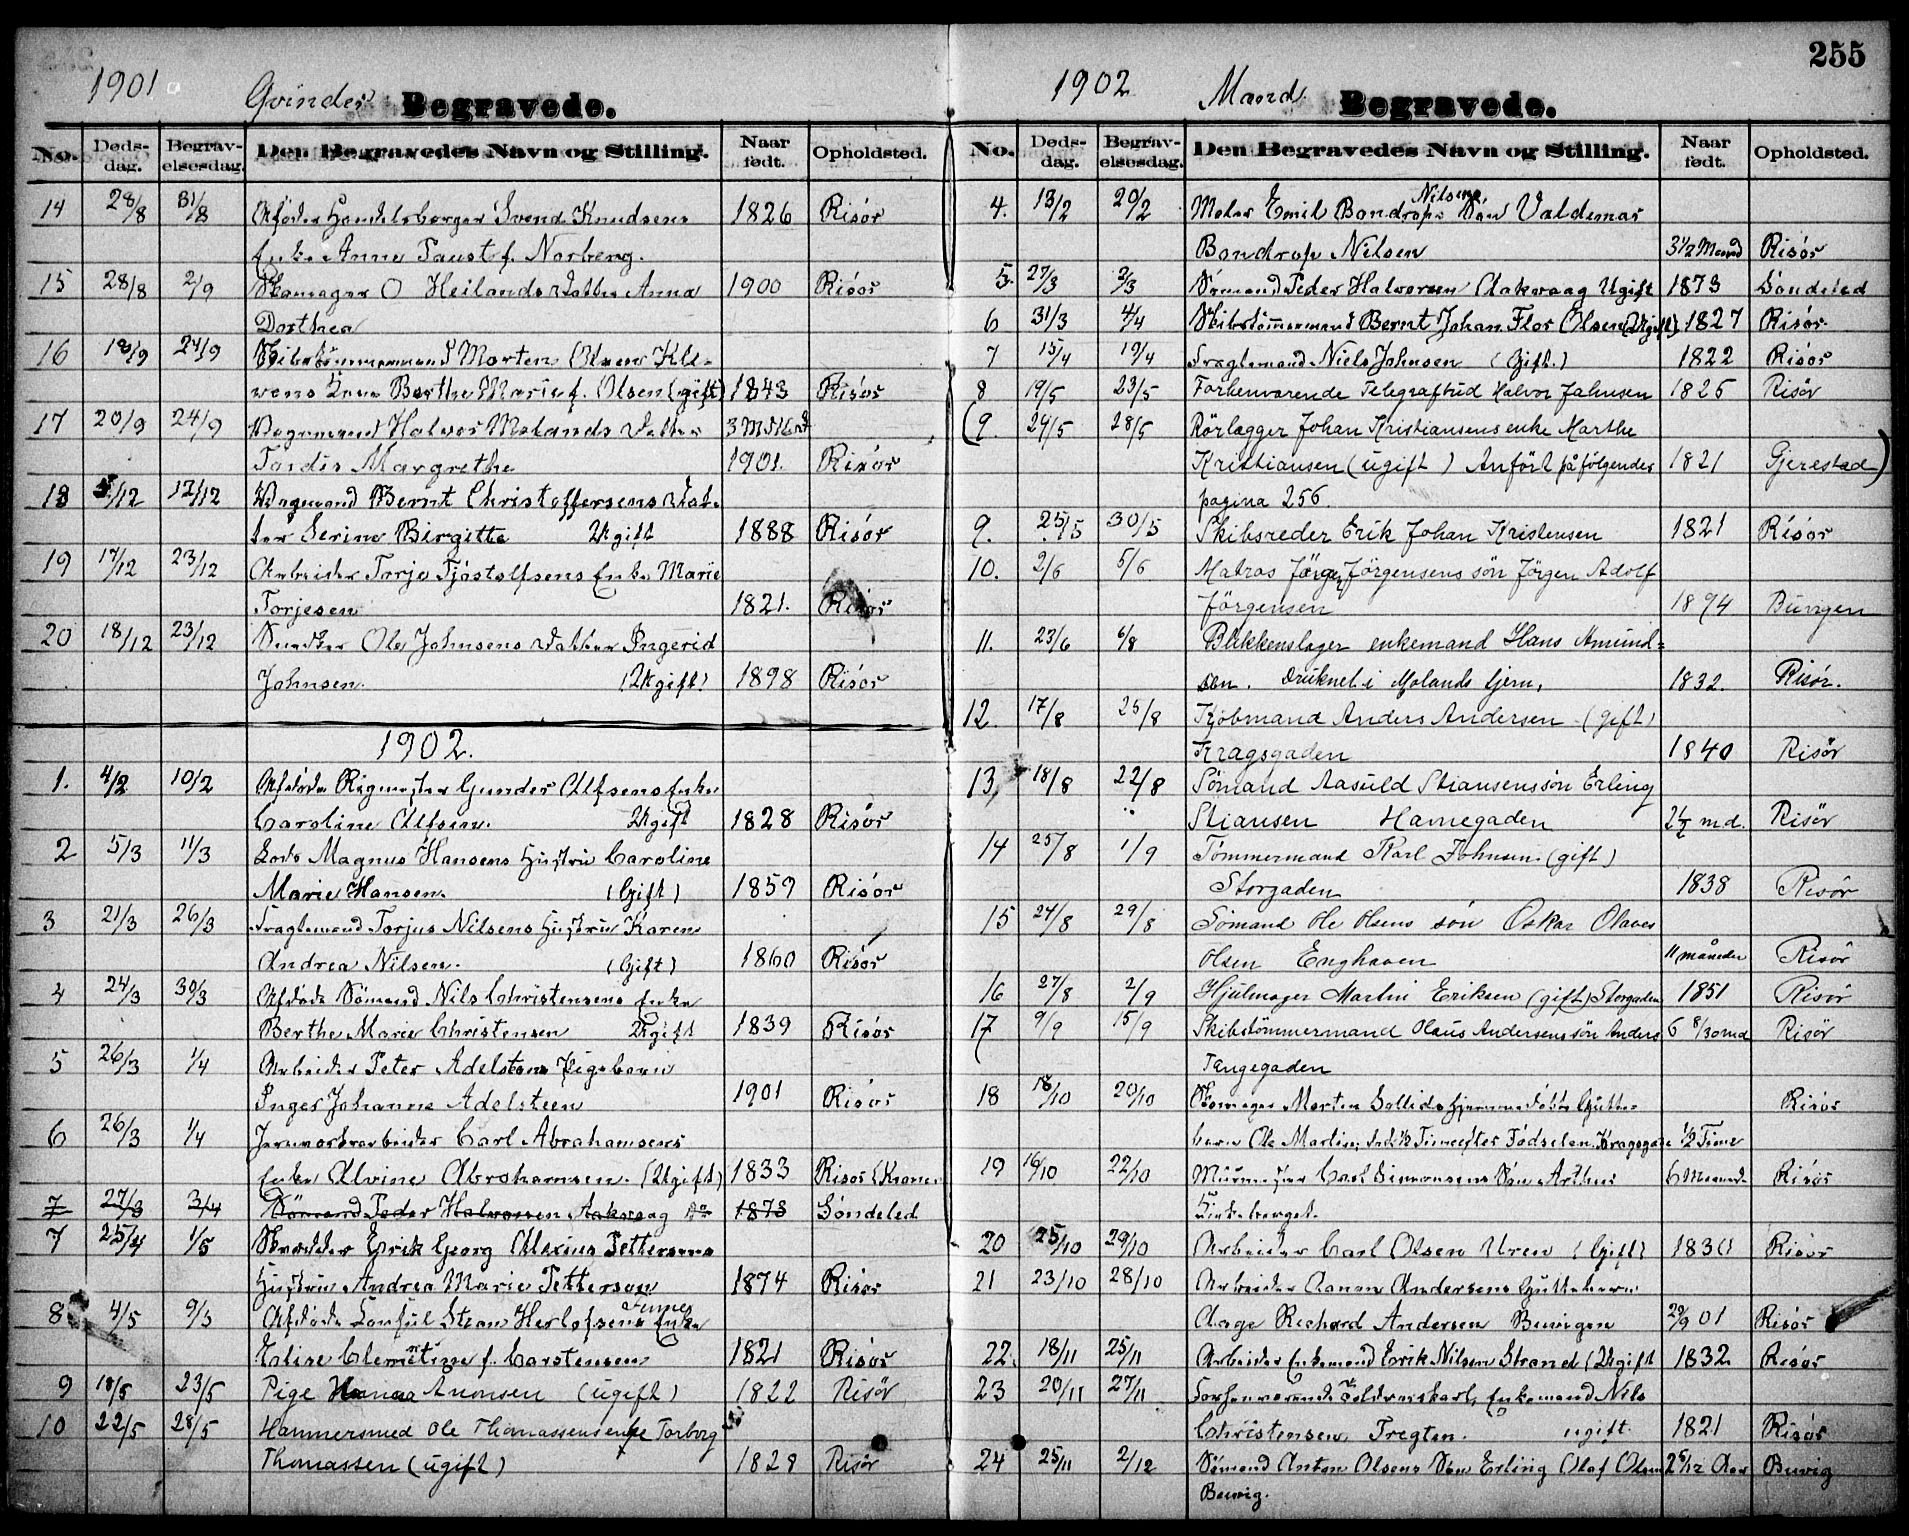 255
1901 Qvinder Begravede.
No. Døds-dag. Begrav-elsesdag. Den Begravedes Navn og Stilling. Naar født. Opholdsted.
14 28/8 31/8 Afdøde Handelsborger Svend Knudsens 1826 Risör
Enke Anne Faust f. Norberg.
15 28/8 2/9 Skomager O Heilands Datter Anna 1900 Risör
Dorthea
16 18/9 24/9 Skibstømmermand Morten Olsens Kle-
vens Kone Berthe Marie f. Olsen (gift) 1843 Risör
17 20/9 24/9 Vognmand Halvor Molands Datter 3 Mdr
Tordis Margrethe 1901. Risör
18 5/12 12/12 Vognmand Bernt Christoffersens Dat-
ter Serine Birgitte Ugift 1888 Risör
19 17/12 23/12 Arbeider Torje Tjöstolfsens Enke Marie
Torjesen 1821. Risör
20 18/12 23/12 Snedker Ole Johnsens Datter Ingerid
Johnsen. (Ugift) 1898 Risör
1902.
1. 4/2 10/2 Afdöde Rigmester Gunder Alfsens Enke
Caroline Alfsen. Ugift 1828 Risör
2 5/3 11/3 Lods Magnus Hansens Hustru Caroline
Marie Hansen. (Gift) 1859 Risör
3 21/3 26/3 Fragtemand Torjus Nilsens Hustru Karen
Andrea Nilsen. (Gift) 1860 Risör
4 24/3 30/3 Afdöde Sömand Nils Christensens Enke
Berthe Marie Christensen Ugift 1839 Risör
5 26/3 1/4 Arbeider Peter Adelsteens Pigebarn
Inger Johanne Adelsteen 1901 Risör
6 26/3 1/4 Jernverksarbeider Carl Abrahamsens
Enke Alvine Abrahamsen. (Ugift) 1833 Risör
7 27/3 3/4 Sömand Peder Halvorsen Aakvaag 1873 Söndeled
7 25/4 1/5 Skrædder Erik Georg Alexius Pettersens
Hustru Andrea Marie Petterson 1874 Risör
8 4/5 9/5 Afdöde Consul Steen Herlofsens Enke
Elise Clementine f. Carstensen 1821 Risör
9 18/5 23/5 Pige Hanna Anonsen (ugift) 1822 Risör
10 22/5 28/5 Hammersmed Ole Thomassens enke Torborg
Thomassen (ugift) 1828 Risör
1902 Mænd. Begravede.
No. Døds-dag. Begrav-elsesdag. Den Begravedes Navn og Stilling. Naar født. Opholdsted.
4. 13/2 20/2 Maler Emil Bondrops Nilsens Sön Valdemar
Bondrop Nilsen 3 1/2 Maand Risör
5. 27/3 3/3 Sömand Peder Halvorsen Aakvaag Ugift 1873 Söndeled
6 31/3 4/4 Skibstömmermand Bernt Johan Flor Olsen (Ugift) 1827 Risör.
7 15/4 19/4 Fragtemand Niels Johnsen (Gift.) 1822 Risör
8 19/5 23/5 Forhenværende Telegrafbud Halvor Johnsen 1826 Risör
(9. 24/5 28/5 Rörlægger Johan Kristiansens enke Marthe
Kristiansen (ugift) Anfört på følgende 1821 Gjerestad)
pagina 256.
9. 25/5 30/5 Skibsreder Erik Johan Kristensen 1821 Risör
10. 2/6 5/6 Matros Jörgen Jörgensens sön Jörgen Adolf
Jörgensen 1894 Buvigen
11. 23/6 6/8 Blikkenslager enkemand Hans Amund-
sen. Druknet i Molands tjern, 1832. Risör.
12. 17/8 25/8 Kjöbmand Anders Andersen (gift)
Kragsgaden 1840 Risör
13, 18/8 22/8 Sömand Aasuld Stiansens sön Erling
Stiansen Havnegaden 2 1/2 m.d. Risör
14 25/8 1/9 Tömmermand Karl Johnsen (gift)
Storgaden 1838 Risör
15 24/8 29/8 Sömand Ole Olsens sön Oskar Olaves
Olsen Enghaven 11 måneder Risör
16 27/8 2/9 Hjulmager Martin Eriksen (gift) Storgaden 1851 Risör
17 9/9 15/9 Skibstömmermand Olaus Andersens sön Anders 6 8/30 md Risör
Tangegaden
18 18/10 20/10 Skomager Morten Sollids Gutte- Risör
barn Ole Martin; död 1/2 Time efter Födselen. Kragsgade 1/2 Time
19 16/10 22/10 Murmester Carl Simonsens Sön Arthur 6 Maaned Risör
20 25/10 29/10 Arbeider Carl Olsen Uren (Gift) 1830 Risör
21 23/10 28/10 Arbeider Aanon Andersens Guttebarn
Aage Richard Andersen Buvigen 29/9 01 Risör
22. 18/11 25/11 Arbeider Enkemand Erik Nilsen Strand (Ugift 1832 Risör
23 20/11 27/11 Forhenværende Toldvæskarl, Enkemand Nils
Christensen Tregten. ugift. 1821 Risör
24 25/11 2/12 Sömand Anton Olsens Sön Erling Olaf Olsen 2 5/12 Aar Buvig
Buvig.